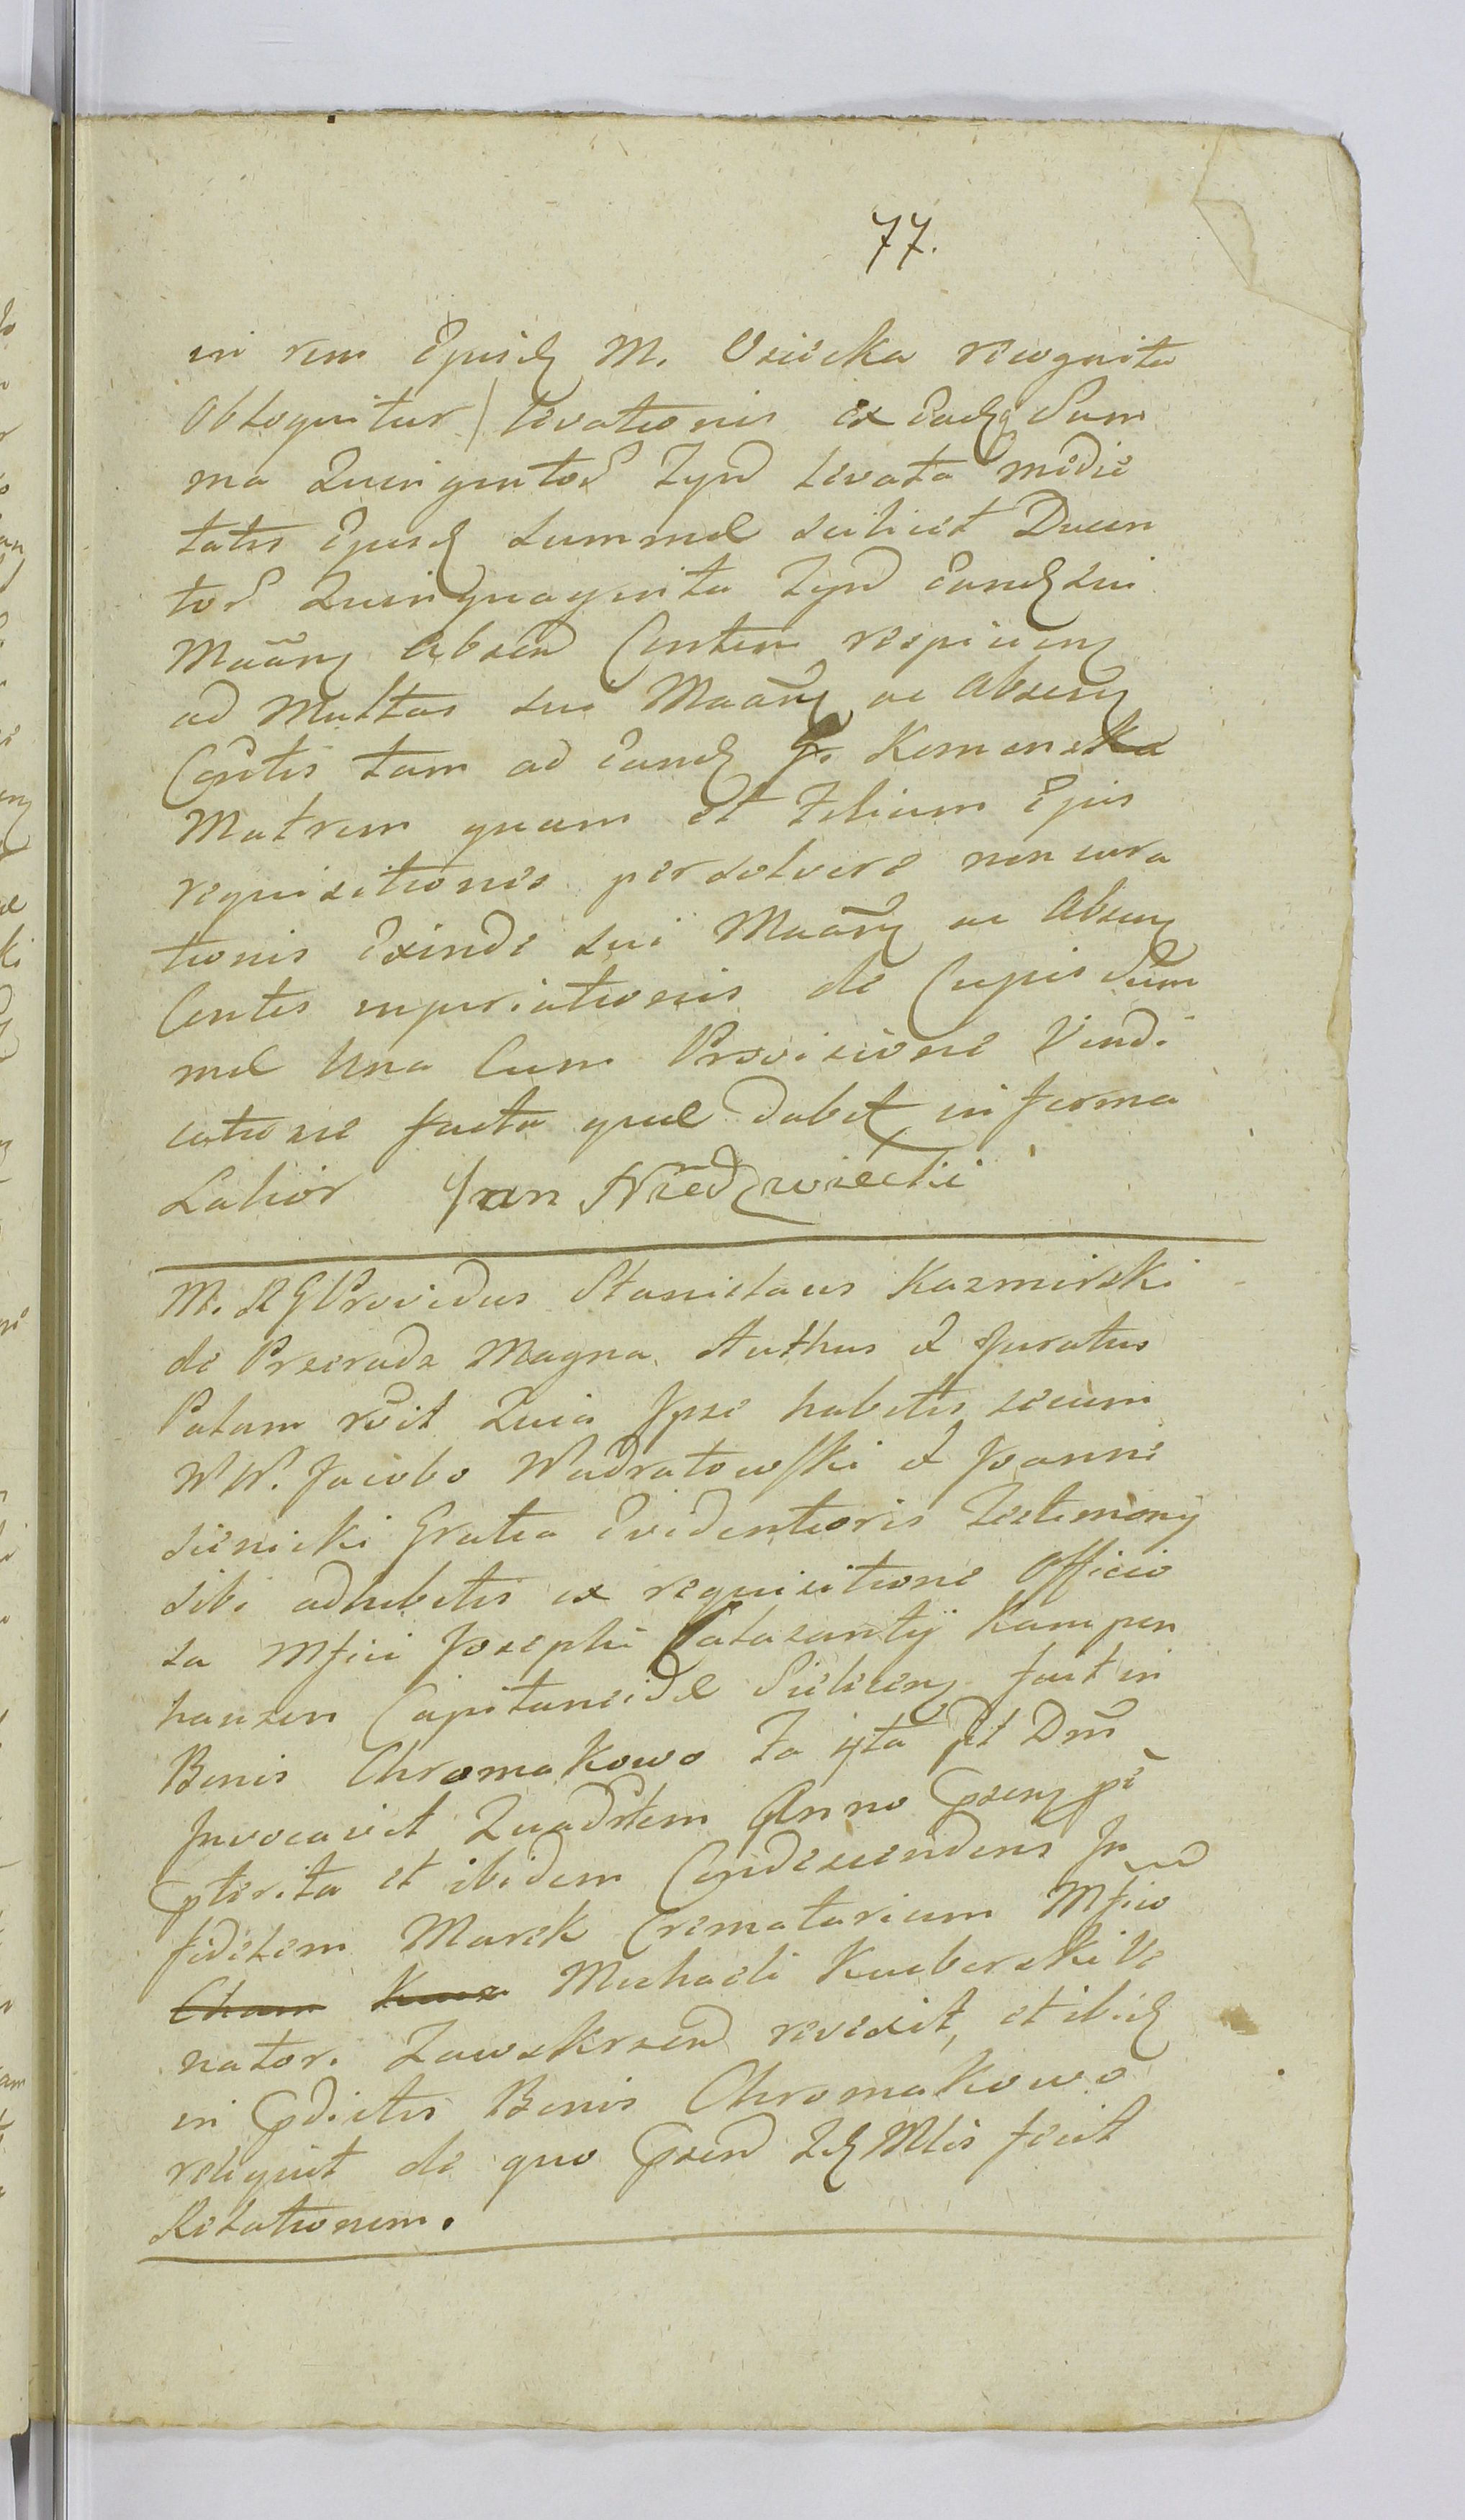 77.
in rem Ejusdꝫ M. Osiecka recognita
Obloquitur / levationis ex Eadꝫ Sum
ma Quingentor Typ levata medie
tatis Ejusdꝫ Summæ scilicet Ducen
tor Quinquaginta Eandꝫ sui
Maãrꝫ Absen Contem respicienꝫ
ad Multas sui Maãrꝫ ac Absenꝫ
Contis tam ad Eandꝫ G. Komorska
Matrem quam et Filium Ejus
requisitiones persolvere non cura
tionis Exinde sui Maãrꝫ ac Absenꝫ
Contis injuriationis de Cujus Sum
mæ Una Cum Provisione Vindi
catione facta quæ dabit in forma
Latior Jan Niedzwiecki
M. R G Providus Stanislaus Kazmirski
de Przeradz Magna Authus & Juratus
Palam rcit Quia Ipse habitis secum
NN. Jacobo Wadratowski & Joanne
Sienicki Gratia Evidentioris Testimony
sibi adhibitis ex requisitione Officio
sa Mfici Josephi Calasantÿ Kampen
hausen Capitaneidæ Sielscenꝫ fert in
Bonis Chromakowo Fa ijta pt Dñi
Invocavit Quadrlem Anno Pzenꝫ
Pterita et ibidem Condescendens In
fidelem Marek Crematorium Mfico
Cham Kucz Michaeli Kucborski Ve
nator. Zawskrzen revexit, et ibidꝫ
in Pdictis Bonis Chromakowo
reliquit de quo Pzen Mlis fecit
Relationem.